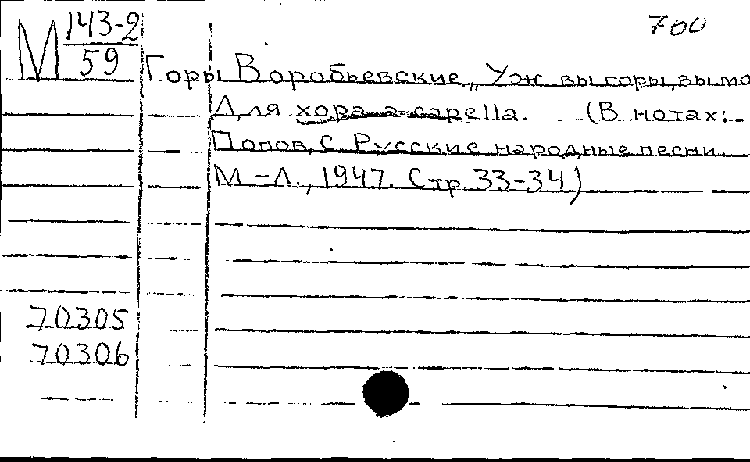 М 143-2
59
700
Горы Воробьевские „Уж вы горы, вы мо
Для хора a capella. (В нотах:
Попов, С. Русские народные песни.
М.-Л., 1947. Стр. 33-34)
70305
70306